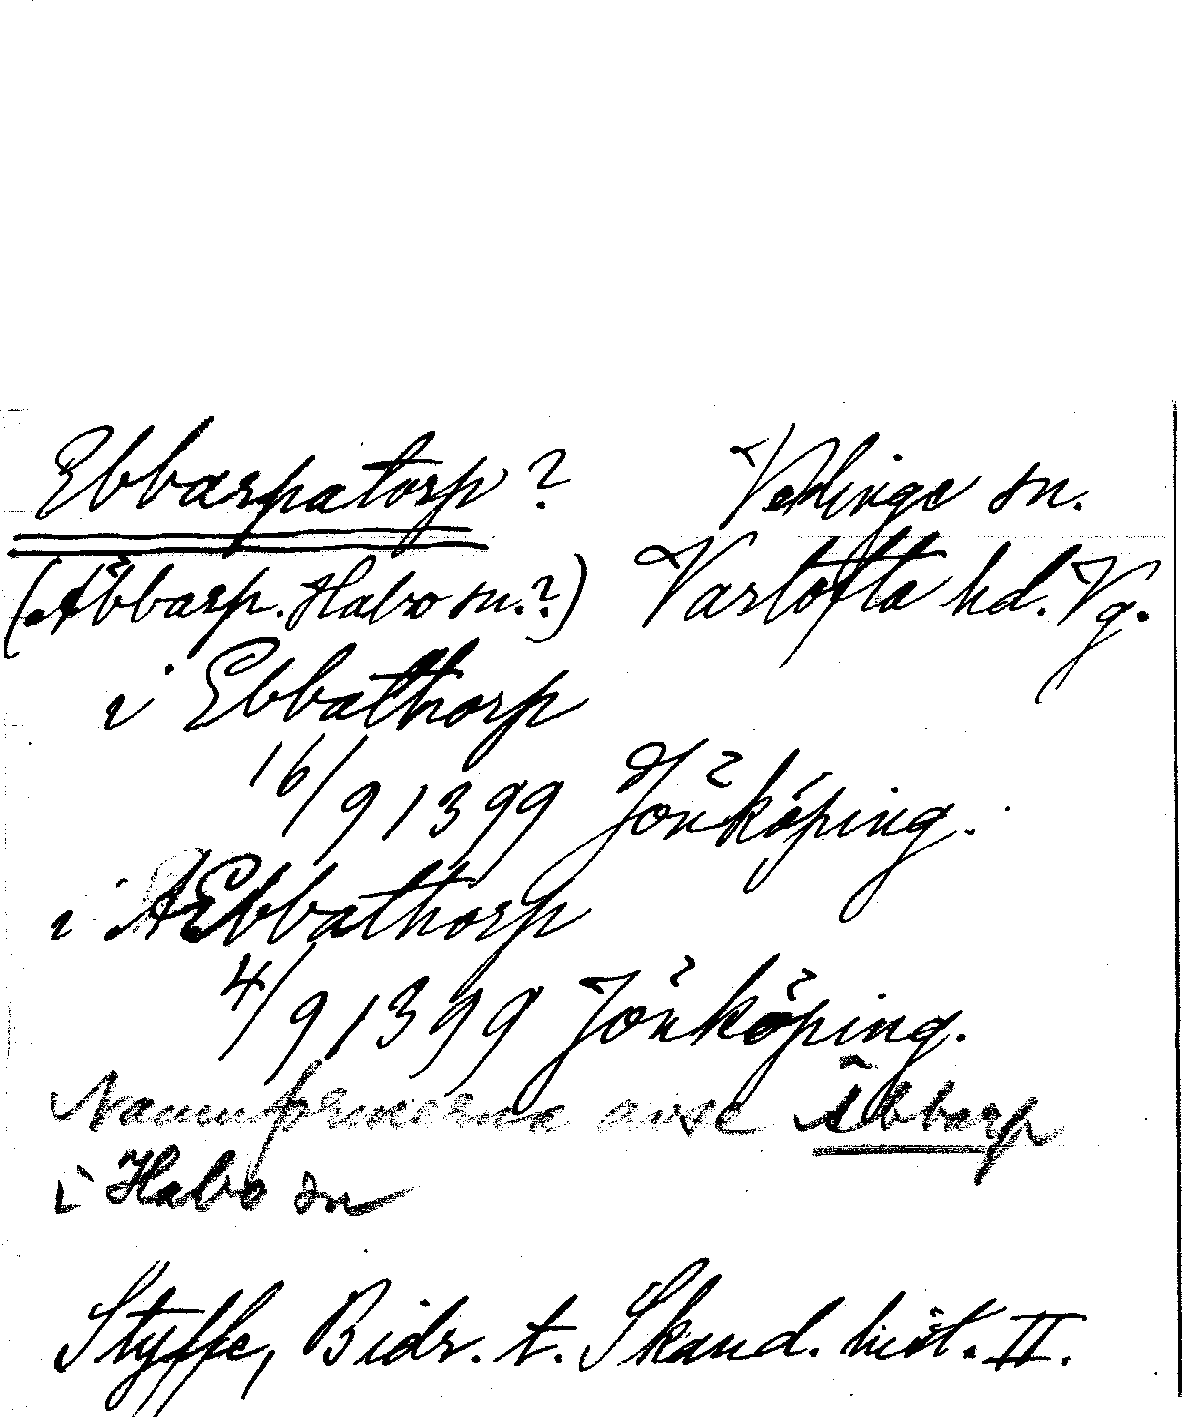 Ebbarpatorp? Velinge sn.
(Äbbarp. Habo sn.?) Vartofta hd. Vg.
i Ebbathorp
16/9 1399 Jönköping.
i AEbbathorp
4/9 1399 Jönköping.
Namnformerna avse Äbbarp
i Habo sn
Styffe, Bidr. t. Skand. hist. II.